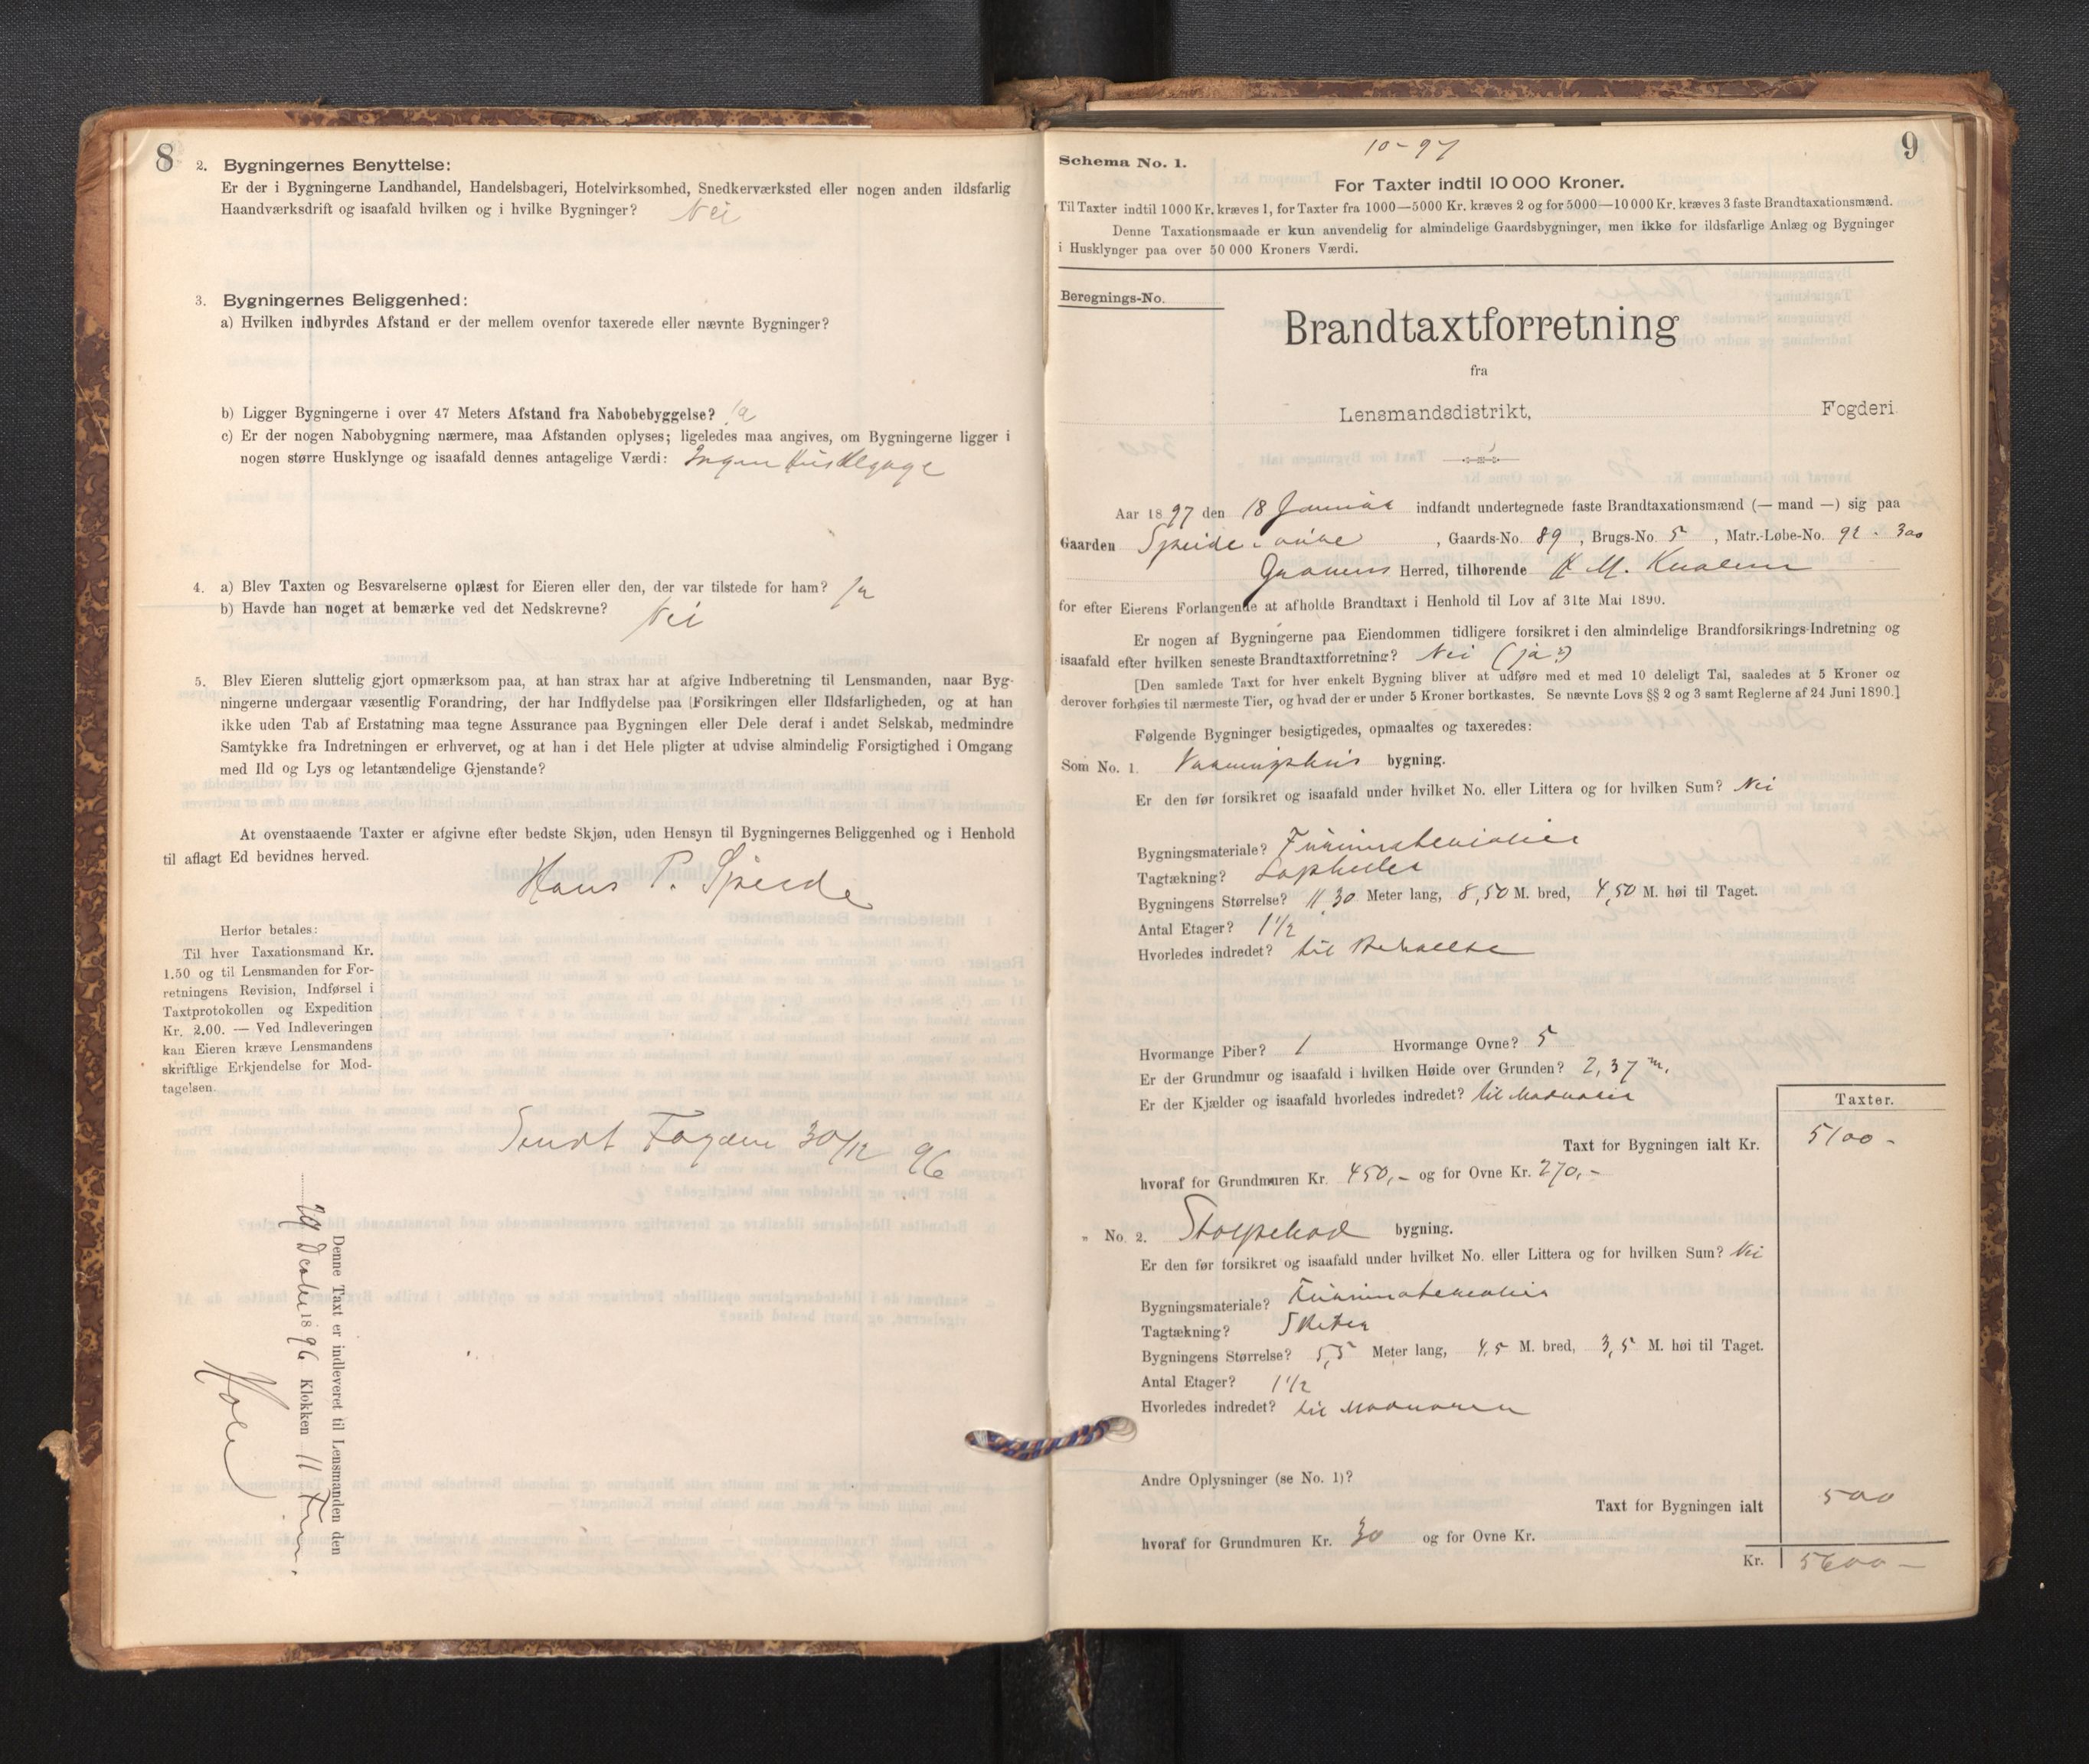 8
2. Bygningernes Benyttelse:
Er der i Bygningerne Landhandel, Handelsbageri, Hotelvirksomhed, Snedkerværksted eller nogen anden ildsfarlig
Haandværksdrift og isaafald hvilken og i hvilke Bygninger? Nei
3. Bygningernes Beliggenhed:
a) Hvilken indbyrdes Afstand er der mellem ovenfor taxerede eller nævnte Bygninger?
b) Ligger Bygningerne i over 47 Meters Afstand fra Nabobebyggelse? Ja
c) Er der nogen Nabobygning nærmere, maa Afstanden oplyses; ligeledes maa angives, om Bygningerne ligger i
nogen større Husklynge og isaafald dennes antagelige Værdi: Ingen
4. a) Blev Taxten og Besvarelserne oplæst for Eieren eller den, der var tilstede for ham? Ja
b) Havde han noget at bemærke ved det Nedskrevne? Nei
5. Blev Eieren sluttelig gjort opmærksom paa, at han strax har at afgive Indberetning til Lensmanden, naar Byg-
ningerne undergaar væsentlig Forandring, der har Indflydelse paa Forsikringen eller Ildsfarligheden, og at han
ikke uden Tab af Erstatning maa tegne Assurance paa Bygningen eller Dele deraf i andet Selskab, medmindre
Samtykke fra Indretningen er erhvervet, og at han i det Hele pligter at udvise almindelig Forsigtighed i Omgang
med Ild og Lys og letantændelige Gjenstande?
At ovenstaaende Taxter er afgivne efter bedste Skjøn, uden Hensyn til Bygningernes Beliggenhed og i Henhold
til aflagt Ed bevidnes herved.
Hans P. Speide
Herfor betales:
Til hver Taxationsmand Kr.
1.50 og til Lensmanden for For-
retningens Revision, Indførsel i
Taxtprotokollen og Expedition
Kr. 2.00. — Ved Indleveringen
kan Eieren kræve Lensmandens
skriftlige Erkjendelse for Mod-
tagelsen.
Sendt Fogden 30/12 96
Denne Taxt er indleveret til Lensmanden den
29 Decbr 1896 Klokken 11 Fm.
9
10-97
Schema No. 1.
For Taxter indtil 10 000 Kroner.
Til Taxter indtil 1000 Kr. kræves 1, for Taxter fra 1000—5000 Kr. kræves 2 og for 5000—10 000 Kr. kræves 3 faste Brandtaxationsmænd.
Denne Taxationsmaade er kun anvendelig for almindelige Gaardsbygninger, men ikke for ildsfarlige Anlæg og Bygninger
i Husklynger paa over 50 000 Kroners Værdi.
Beregnings-No.
Brandtaxtforretning
fra
Lensmandsdistrikt, Fogderi
Aar 1897 den 18 Januar indfandt undertegnede faste Brandtaxationsmænd (— mand —) sig paa
Gaarden Speide , Gaards-No. 89 , Brugs-No. 5 , Matr.-Løbe-No. 92 . 300
Herred, tilhørende K M.
for efter Eierens Forlangende at afholde Brandtaxt i Henhold til Lov af 31te Mai 1890.
Er nogen af Bygningerne paa Eiendommen tidligere forsikret i den almindelige Brandforsikrings-Indretning og
isaafald efter hvilken seneste Brandtaxtforretning? Nei (ja?)
[Den samlede Taxt for hver enkelt Bygning bliver at udføre med et med 10 deleligt Tal, saaledes at 5 Kroner og
derover forhøies til nærmeste Tier, og hvad der er under 5 Kroner bortkastes. Se nævnte Lovs §§ 2 og 3 samt Reglerne af 24 Juni 1890.]
Følgende Bygninger besigtigedes, opmaaltes og taxeredes:
Som No. 1. Vaaningshus bygning.
Er den før forsikret og isaafald under hvilket No. eller Littera og for hvilken Sum? Nei
Bygningsmateriale? Furumaterialier
Tagtækning? Lapheller
Bygningens Størrelse? 11,30 Meter lang, 8,50 M. bred, 4,50 M. høi til Taget.
Antal Etager? 1 1/2
Hvorledes indredet? til Beboelse
Hvormange Piber? 1 Hvormange Ovne? 5
Er der Grundmur og isaafald i hvilken Høide over Grunden? 2,37 m.
Er der Kjælder og isaafald hvorledes indredet? til Madvarer
Taxter.
Taxt for Bygningen ialt Kr. 5100 -
hvoraf for Grundmuren Kr. 450,- og for Ovne Kr. 270,-
„ No. 2. Stolpebod bygning.
Er den før forsikret og isaafald under hvilket No. eller Littera og for hvilken Sum? Nei
Bygningsmateriale? Furumaterialier
Tagtækning? Skifer
Bygningens Størrelse? 5,5 Meter lang, 4,5 M. bred, 3,5 M. høi til Taget.
Antal Etager? 1 1/2
Hvorledes indredet? til Madvarer
Andre Oplysninger (se No. 1)?
Taxt for Bygningen ialt 500
hvoraf for Grundmuren Kr. 30 og for Ovne Kr.
Kr. 5600 -